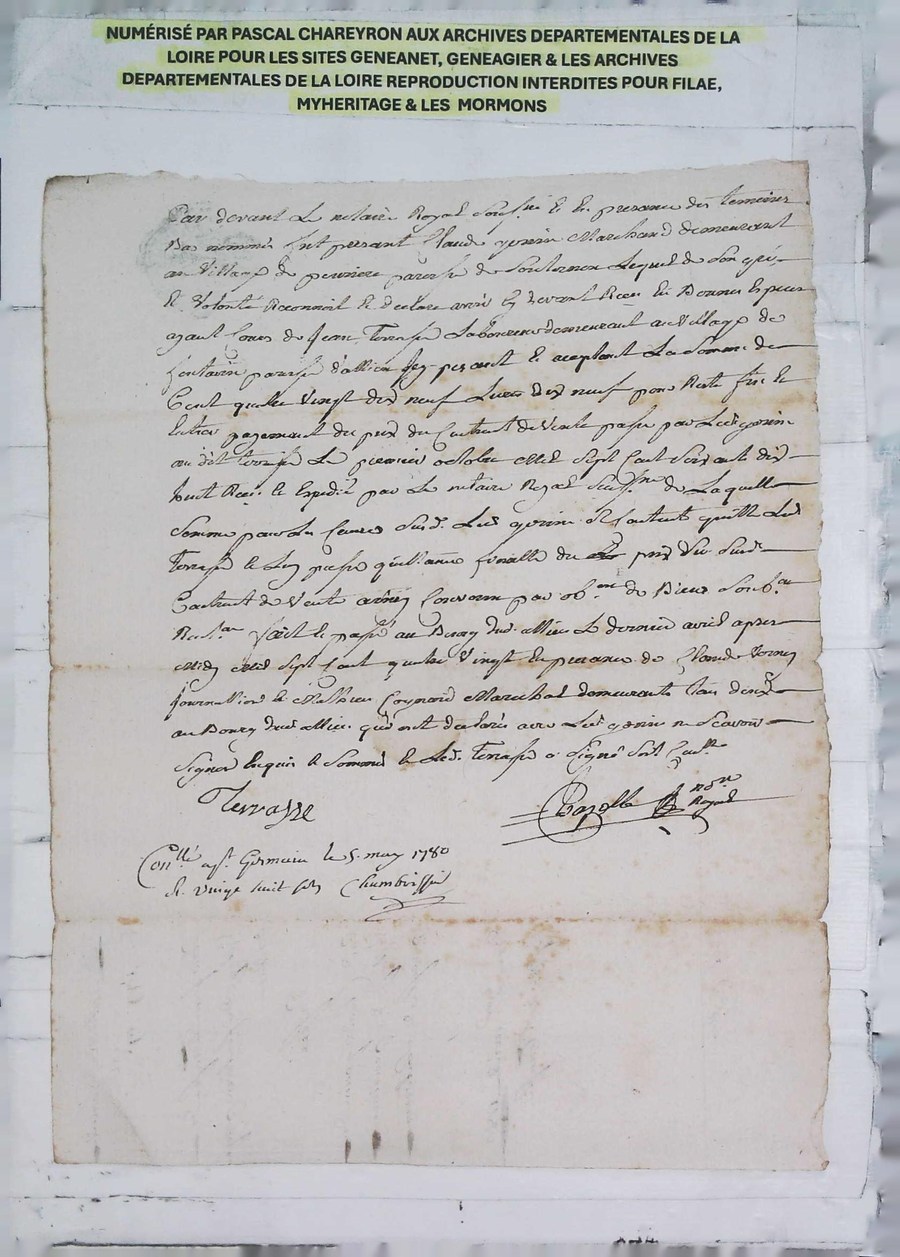 NUMÉRISÉ PAR PASCAL CHAREYRON AUX ARCHIVES DEPARTEMENTALES DE LA
LOIRE POUR LES SITES GENEANET, GENEAGIER & LES ARCHIVES
DEPARTEMENTALES DE LA LOIRE REPRODUCTION INTERDITES POUR FILAE,
MYHERITAGE & LES MORMONS
Par devant Le notaire Royal Sousné et En presance des temoins
Bas nommés fut presant Claude gerin Marchand demeurant
au Village de paroisse de Souternon Lequel de Son gré
Et Volonté Reconnoit Et declare avoir Cy devant Receu En Bonnes Especes
ayant Cours de Jean Terrasse Laboureur demeurant au Village de
fontavin paroisse d'allieu Icy presant Et aceptant La Somme de
Cent quatre Vingt dix neuf Livres dix neuf pour Reste fin Et
Entier payement du prix du Contract de Vente passé par Led gerin
aud terrasse Le premier octobre Mil Sept Cent Soixante dix
huit Receu Et Expedié par Le notaire Royal Sousne de Laquelle
Somme pour Les Causes Susd. Led gerin Se Contente quitte Led
Terrasse Et Luy passe quittance finalle du prix du Susd
Contract de Vente ainsy Convenu par obon de Biens Soubon
Renon fait Et passé au Bourg dud. allieu Le dernier avril apres
Midy Mil Sept Cent quatre Vingt En presance de Claude
journallier Et Mathieu Coignard Marechal demeurants tous deux
au Bourg dud allieu qui ont declaré avec Led gerin ne Scavoir
Signer Enquis Et Sommés Et Led. Terrasse a Signé
Terrasse
Chazelle nore Royal
Conllé a St. Germain le 5. may 1780
R. vingt huit sols